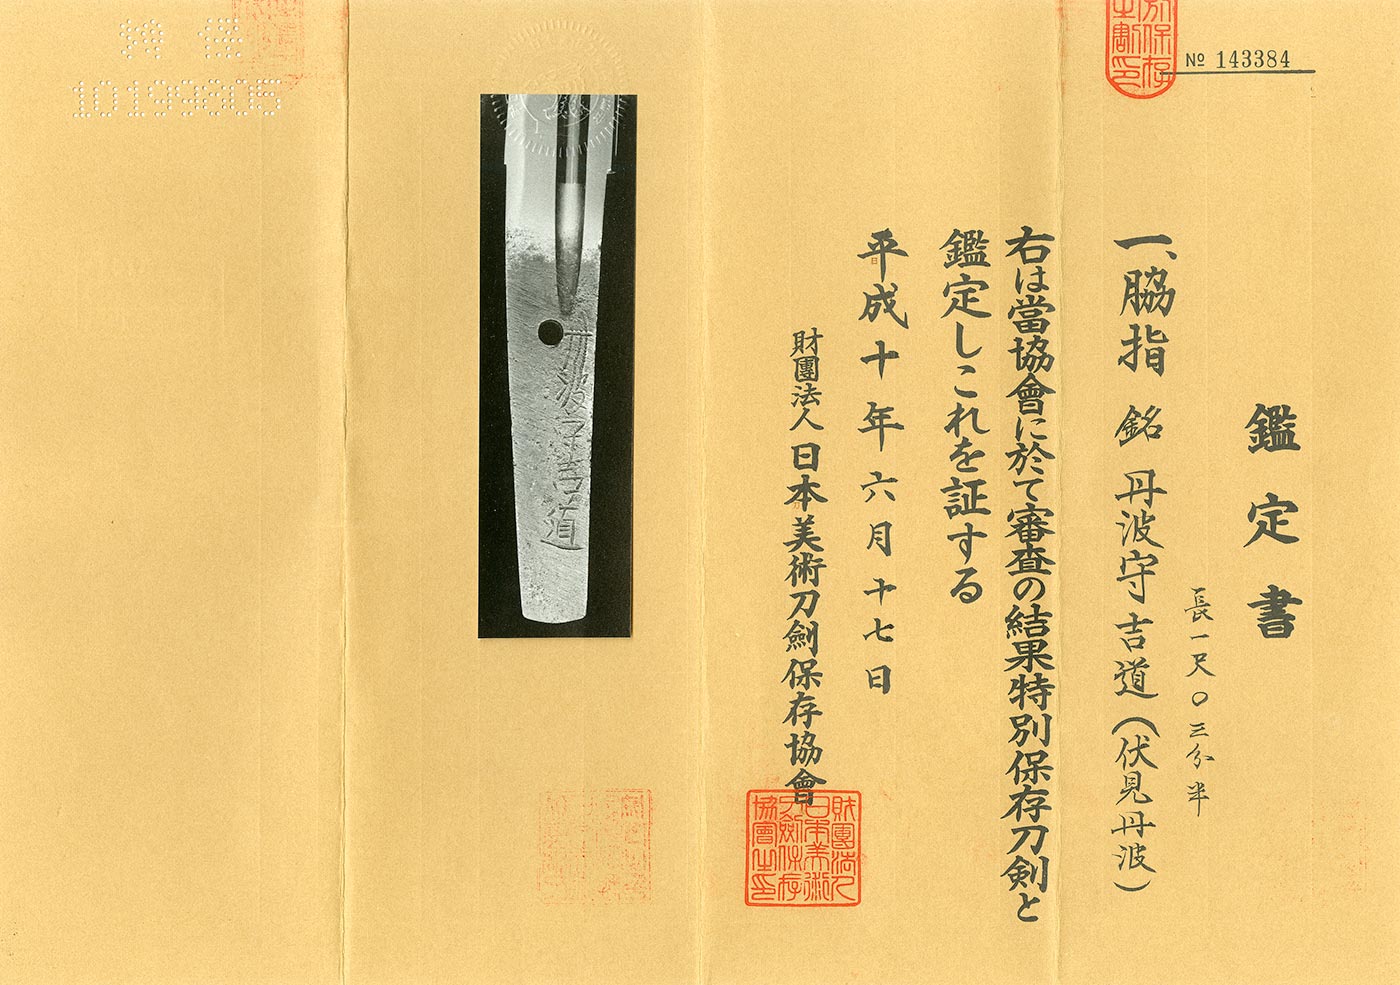 No 143384
鑑定書
一、脇指 銘 丹波守吉道(伏見丹波)
長一尺〇三分半
右は當協會に於て審査の結果特別保存刀剣と
鑑定しこれを証する
平成十年六月十七日
財團法人 日本美術刀劍保存協會
財團法人
日本美術
刀劍保存
協會之印
丹波守吉道
10199805